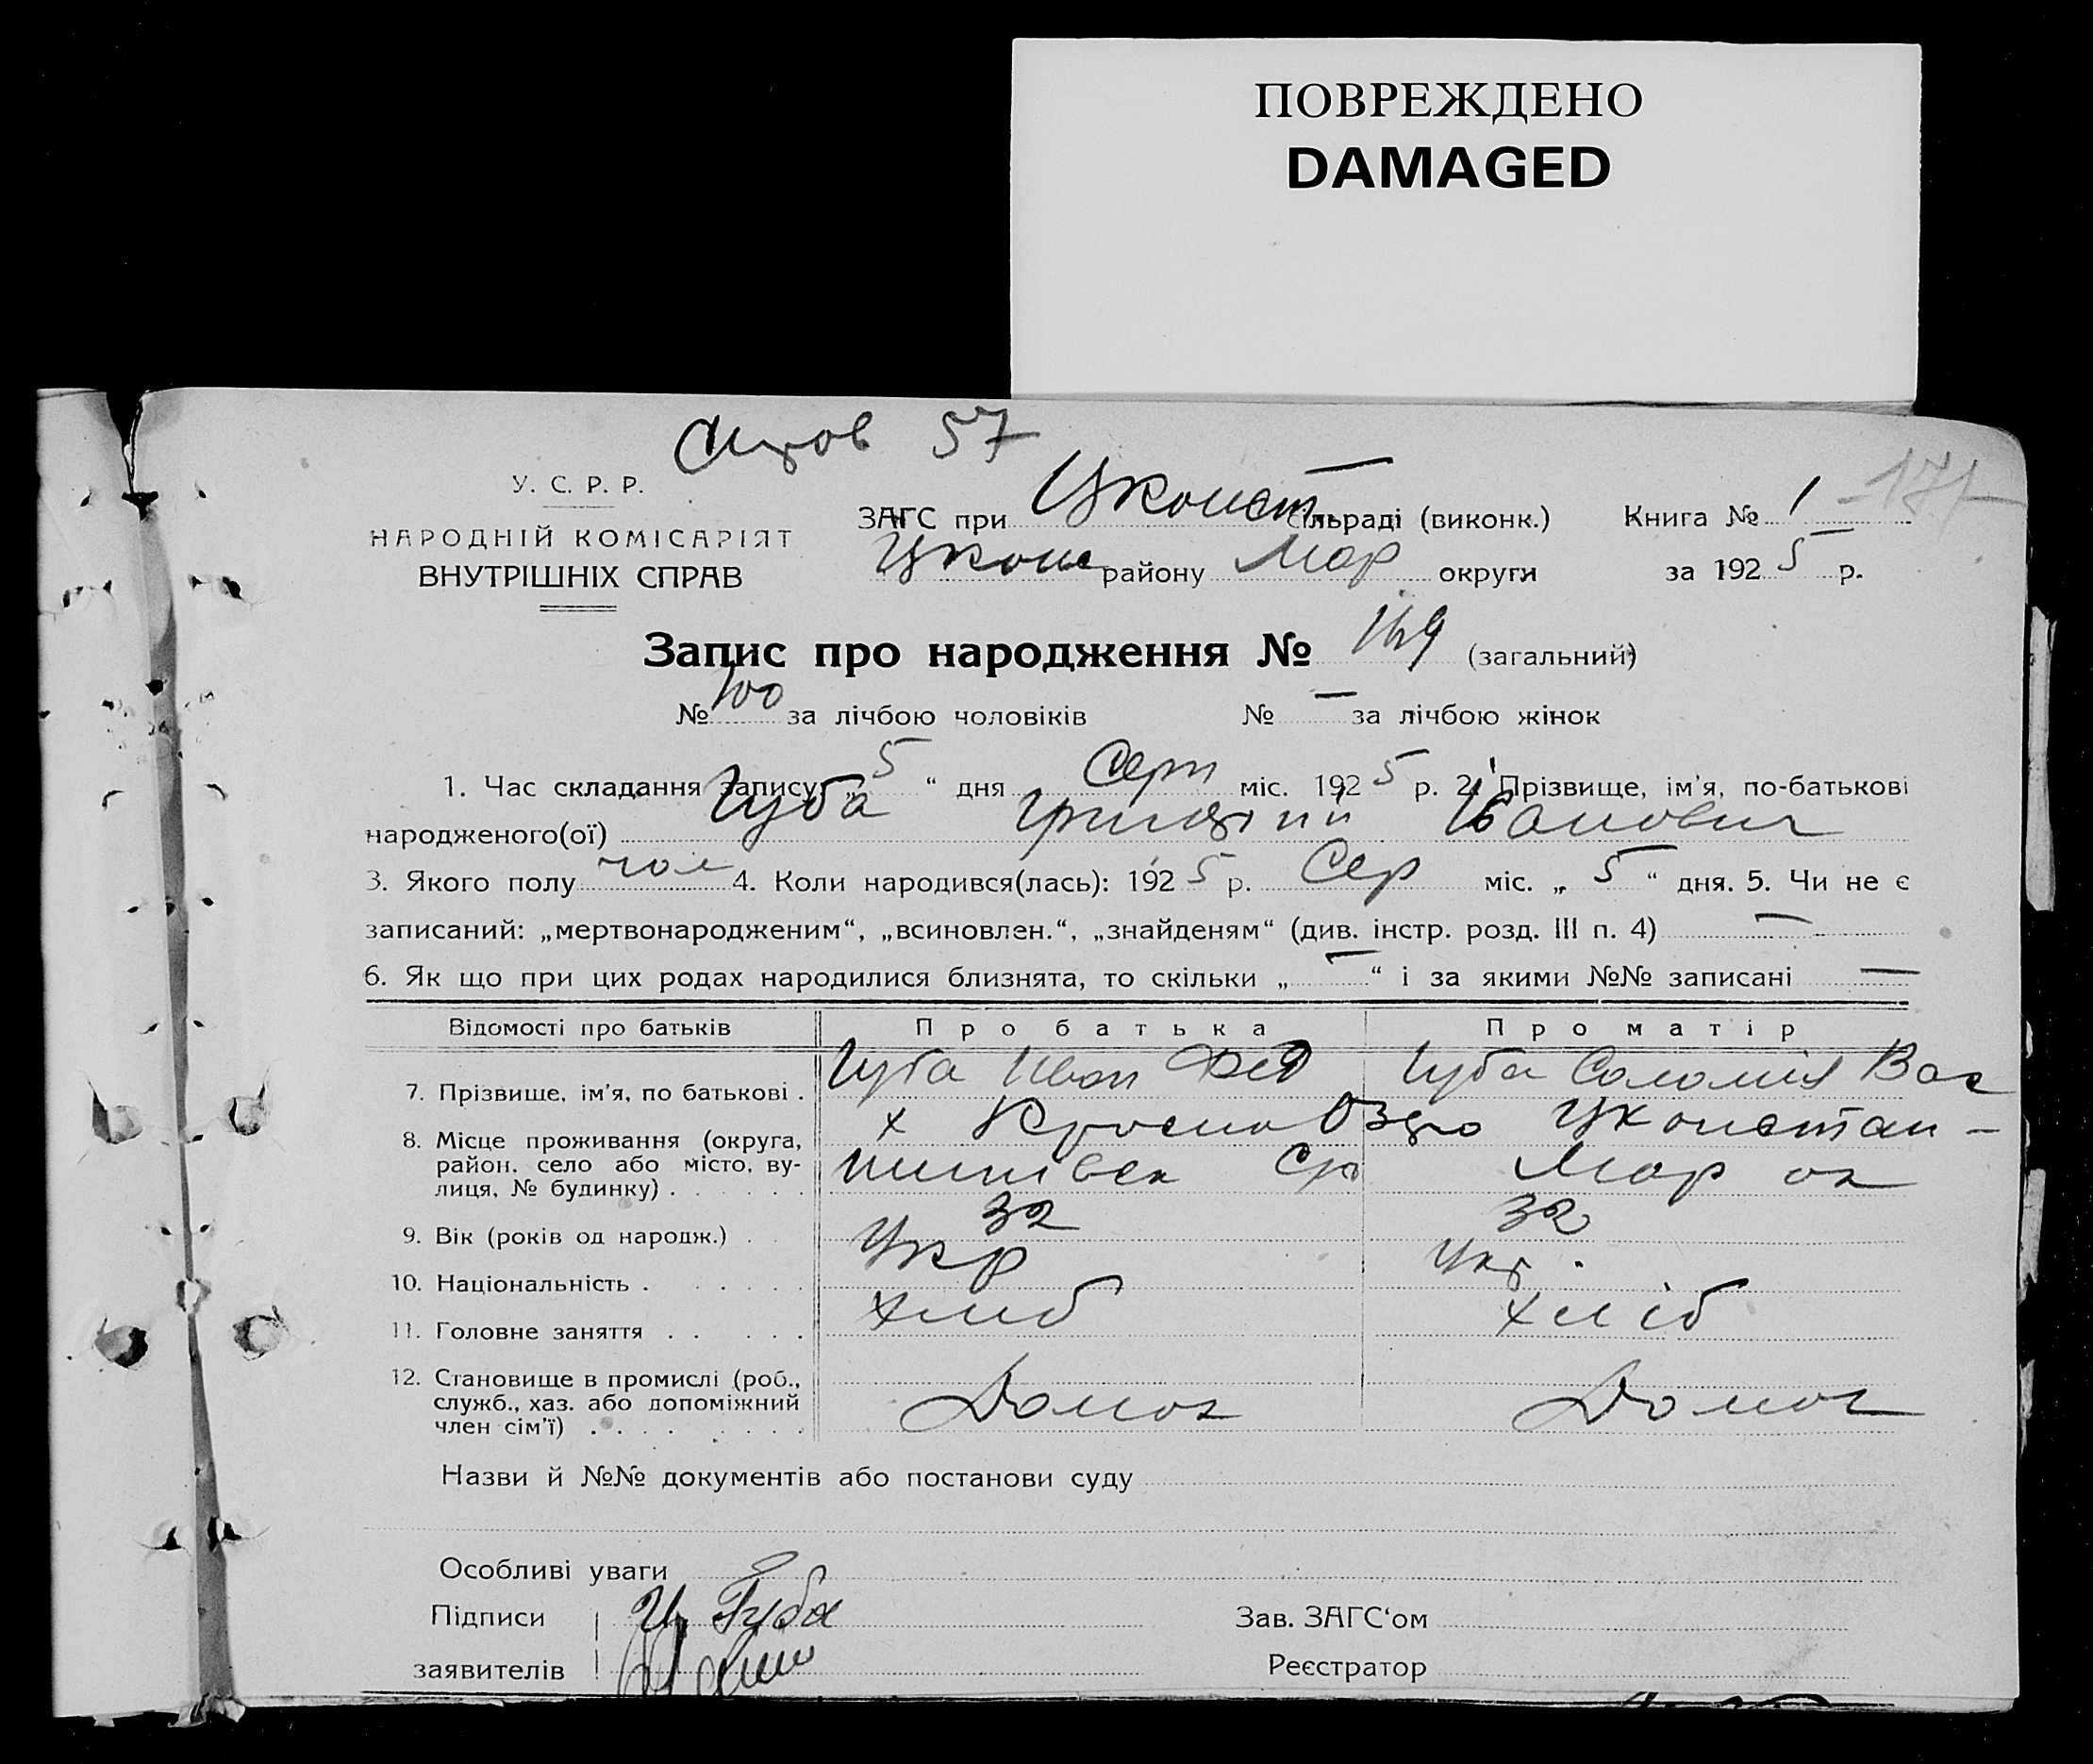 ПОВРЕЖДЕНО
DAMAGED
57
У. С. Р. Р.
НАРОДНІЙ КОМІСАРІЯТ
ВНУТРІШНІХ СПРАВ
ЗАГС при Цконст. сільраді (виконк.) Книга № 1
Цконс району Мар округи за 1925 р.
Запис про народження № 149 (загальний)
№ 100 за лічбою чоловіків № — за лічбою жінок
1. Час складання запису: „5“ дня Серп міс. 1925 р. 2. Прізвище, ім'я, по-батькові
народженого(ої) Губа Григорій Іванович
3. Якого полу чол 4. Коли народився(лась): 1925 р. Сер міс. „5“ дня. 5. Чи не є
записаний: „мертвонародженим“, „всиновлен.“, „знайденям“ (див. інстр. розд. III п. 4) —
6. Як що при цих родах народилися близнята, то скільки „—“ і за якими №№ записані —
Відомості про батьків Про батька Про матір
7. Прізвище, ім'я, по батькові . Губа Иван Фед Губа Соломія Вас
8. Місце проживання (округа, район, село або місто, вулиця, № будинку) . х Цконстан-
Мар ок
9. Вік (років од народж.) . 32 32
10. Національність . Укр Укр.
11. Головне заняття . . хліб хліб
12. Становище в промислі (роб., служб., хаз. або допоміжний член сім'ї) . Домог Домог
Назви й №№ документів або постанови суду
Особливі уваги
Підписи И Губа Зав. ЗАГС'ом
заявителів Реєстратор